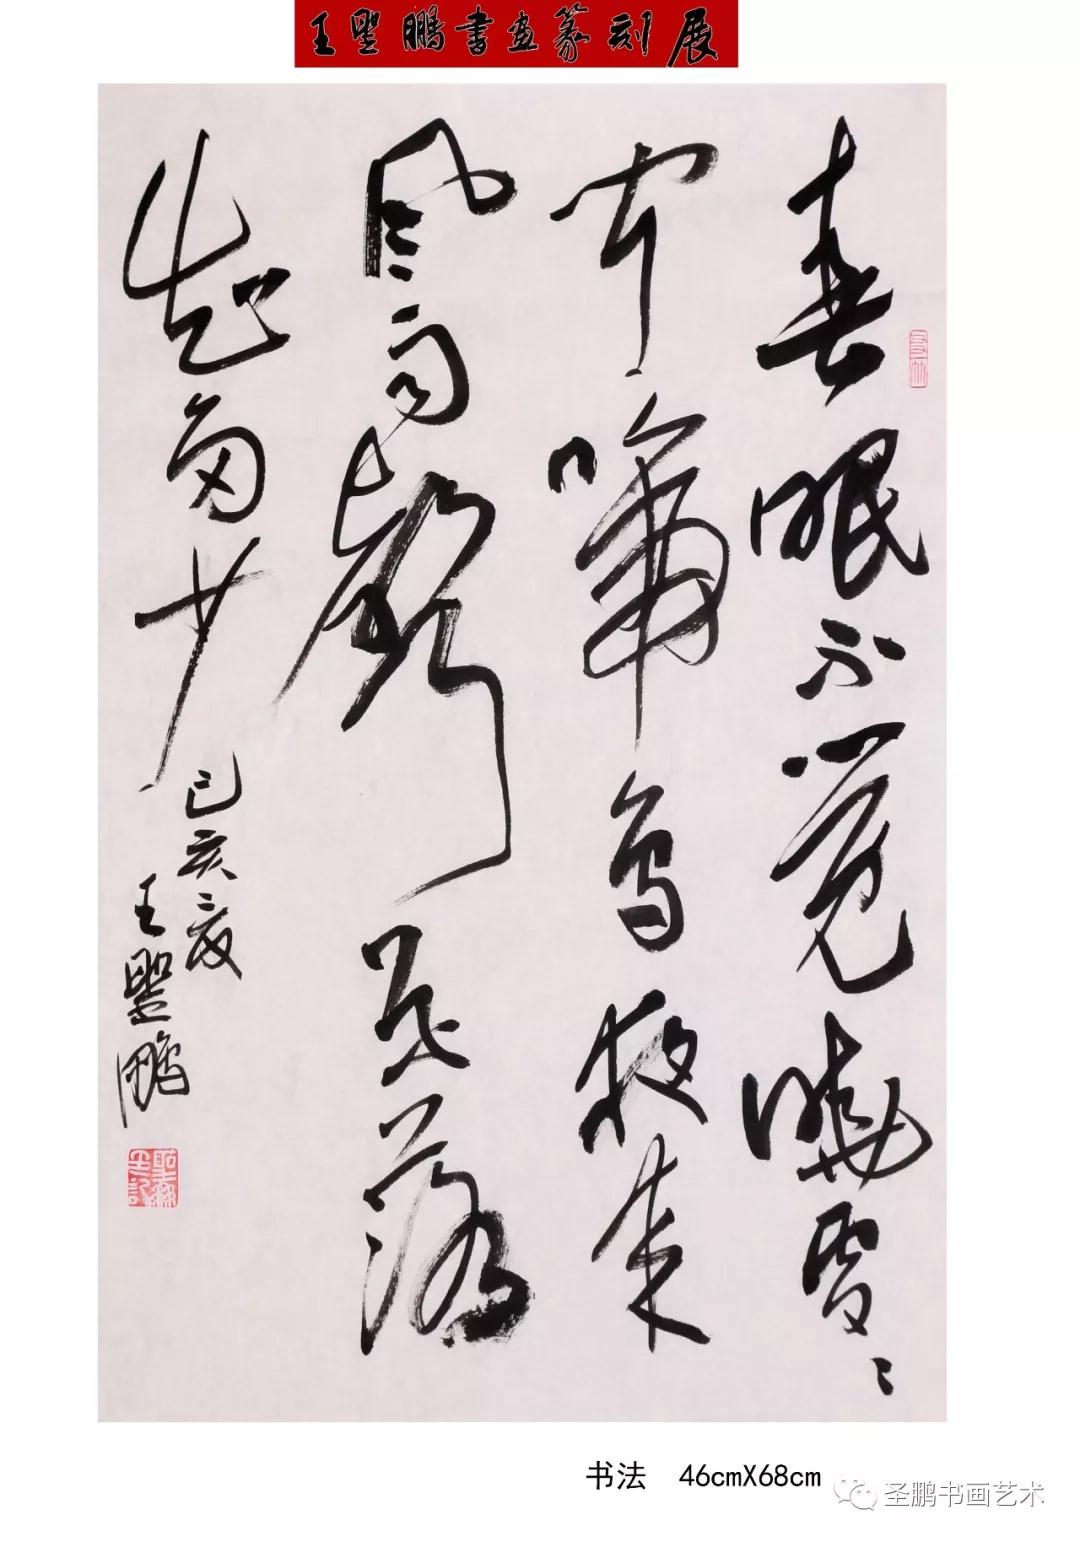 王聖鵬書画篆刻展
春眠不覺曉處〻
闻啼鸟夜来
风雨聲花落
知多少
己亥夏
王聖鵬
书法 46cmX68cm
圣鹏书画艺术